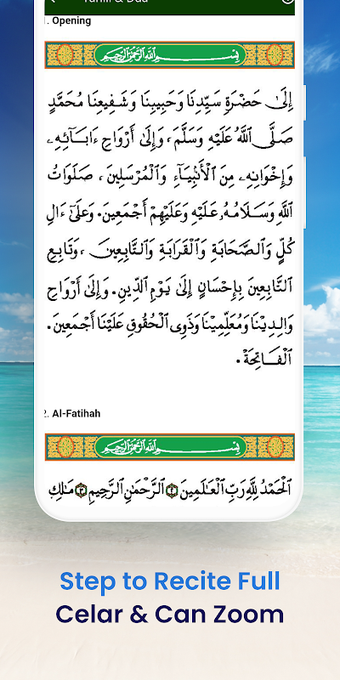 Tahlil & Dua
1. Opening
بِسْمِ اللَّهِ الرَّحْمَٰنِ الرَّحِيمِ
إِلَىٰ حَضْرَةِ سَيِّدِنَا وَحَبِيبِنَا وَشَفِيعِنَا مُحَمَّدٍ
صَلَّى اللَّهُ عَلَيْهِ وَسَلَّمَ، وَإِلَىٰ أَرْوَاحِ ءَابَآئِهِۦ
وَإِخْوَانِهِۦ مِنَ الْأَنْبِيَآءِ وَالْمُرْسَلِينَ، صَلَوَاتُ
اللَّهِ وَسَلَامُهُۥ عَلَيْهِ وَعَلَيْهِمْ أَجْمَعِينَ. وَعَلَىٰٓ ءَالِ
كُلٍّ وَالصَّحَابَةِ وَالْقَرَابَةِ وَالتَّابِعِينَ، وَتَابِعِ
التَّابِعِينَ بِإِحْسَانٍ إِلَىٰ يَوْمِ الدِّينِ. وَإِلَىٰ أَرْوَاحِ
وَالِدِيْنَا وَمُعَلِّمِيْنَا وَذَوِي الْحُقُوقِ عَلَيْنَا أَجْمَعِينَ.
الْفَاتِحَةْ.
2. Al-Fatihah
بِسْمِ اللَّهِ الرَّحْمَٰنِ الرَّحِيمِ
الْحَمْدُ لِلَّهِ رَبِّ الْعَالَمِينَ ۝ الرَّحْمَٰنِ الرَّحِيمِ ۝ مَالِكِ
Step to Recite Full
Celar & Can Zoom